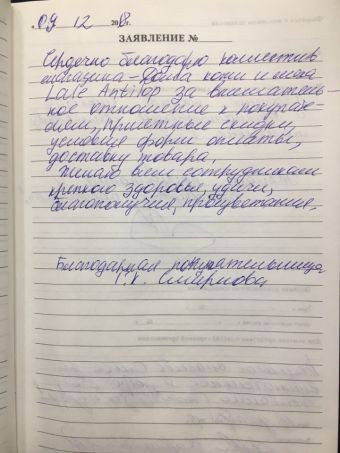 09 12 2018г.
ЗАЯВЛЕНИЕ №
Сердечно благодарю коллектив
магазина - Дома кожи и меха
Lale Antilop за вниматель-
ное отношение к покупаю-
щем, приятные скидки,
условия форм оплаты,
доставку товара.
Желаю всем сотрудникам
крепкого здоровья, удачи,
благополучия, процветания.
Благодарная покупательница
Г.К. Смирнова